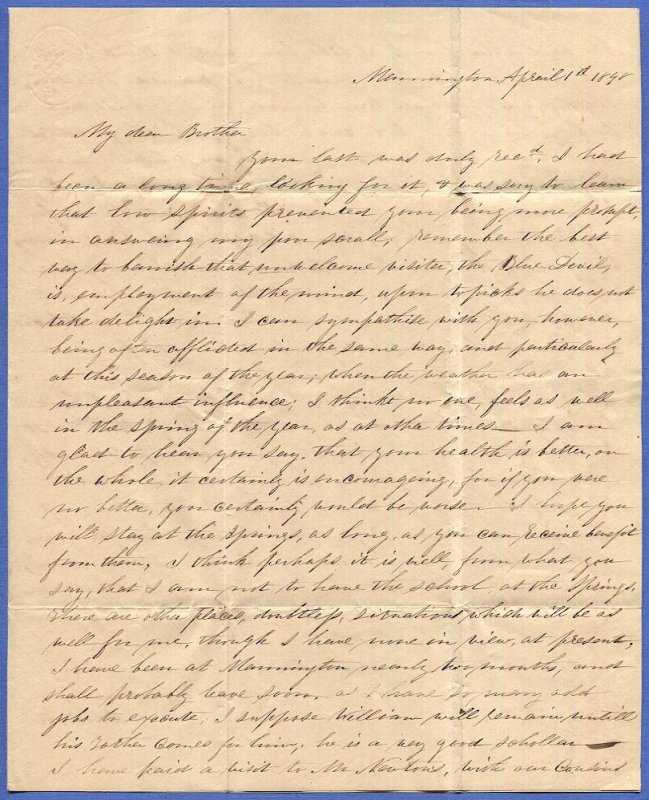 Mannington April 1st 1848
My dear Brother
Your last was duly recd. I had
been a long time looking for it, & was sory to learn
that low spirits prevented your being more prompt,
in answering my poor scrall, remember the best
way to banish that unwelcome visiter, the Blue Devil,
is, employment of the mind, upon topicks he does not
take delight in. I can sympathise with you, however,
being often afflicted in the same way, and particularly
at this season of the year, when the weather has an
unpleasant influence; I think no one, feels as well
in the spring of the year, as at other times — I am
glad to hear you say, that your health is better, on
the whole, it certainly is encouraging, for if you were
no better, you certainly would be worse. I hope you
will stay at the springs, as long, as you can receive benefit
from them, I think perhaps it is well, from what you
say, that I am not to have the school, at the Springs.
there are other places, doubtless, situations which will be as
well for me, though I have none in view, at present,
I have been at Mannington nearly two months, and
shall probably leave soon, as I have so many odd
jobs to execute; I suppose William will remain untill
his Father comes for him, he is a very good schollar —
I have paid a visit to Mr Newtons, with our Cousins